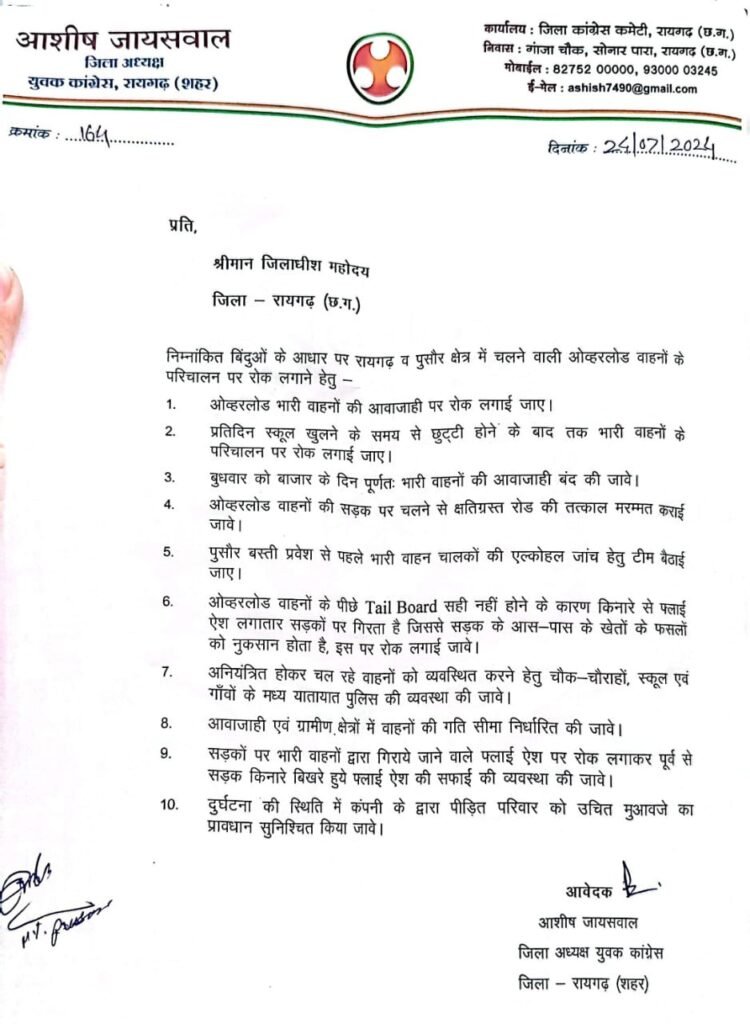 आशीष जायसवाल
जिला अध्यक्ष
युवक कांग्रेस, रायगढ़ (शहर)
कार्यालय : जिला कांग्रेस कमेटी, रायगढ़ (छ.ग.)
निवास : गांजा चौक, सोनार पारा, रायगढ़ (छ.ग.)
मोबाईल : 82752 00000, 93000 03245
ई-मेल : ashish7490@gmail.com
क्रमांक : ....164................
दिनांक : 24/07/2024
प्रति,
श्रीमान जिलाधीश महोदय
जिला – रायगढ़ (छ.ग.)
निम्नांकित बिंदुओं के आधार पर रायगढ़ व पुसौर क्षेत्र में चलने वाली ओव्हरलोड वाहनों के
परिचालन पर रोक लगाने हेतु –
1. ओव्हरलोड भारी वाहनों की आवाजाही पर रोक लगाई जाए।
2. प्रतिदिन स्कूल खुलने के समय से छुट्टी होने के बाद तक भारी वाहनों के
परिचालन पर रोक लगाई जाए।
3. बुधवार को बाजार के दिन पूर्णतः भारी वाहनों की आवाजाही बंद की जावे।
4. ओव्हरलोड वाहनों की सड़क पर चलने से क्षतिग्रस्त रोड की तत्काल मरम्मत कराई
जावे।
5. पुसौर बस्ती प्रवेश से पहले भारी वाहन चालकों की एल्कोहल जांच हेतु टीम बैठाई
जाए।
6. ओव्हरलोड वाहनों के पीछे Tail Board सही नहीं होने के कारण किनारे से फ्लाई
ऐश लगातार सड़कों पर गिरता है जिससे सड़क के आस–पास के खेतों के फसलों
को नुकसान होता है, इस पर रोक लगाई जावे।
7. अनियंत्रित होकर चल रहे वाहनों को व्यवस्थित करने हेतु चौक–चौराहों, स्कूल एवं
गाँवों के मध्य यातायात पुलिस की व्यवस्था की जावे।
8. आवाजाही एवं ग्रामीण क्षेत्रों में वाहनों की गति सीमा निर्धारित की जावे।
9. सड़कों पर भारी वाहनों द्वारा गिराये जाने वाले फ्लाई ऐश पर रोक लगाकर पूर्व से
सड़क किनारे बिखरे हुये फ्लाई ऐश की सफाई की व्यवस्था की जावे।
10. दुर्घटना की स्थिति में कंपनी के द्वारा पीड़ित परिवार को उचित मुआवजे का
प्रावधान सुनिश्चित किया जावे।
आवेदक
आशीष जायसवाल
जिला अध्यक्ष युवक कांग्रेस
जिला – रायगढ़ (शहर)